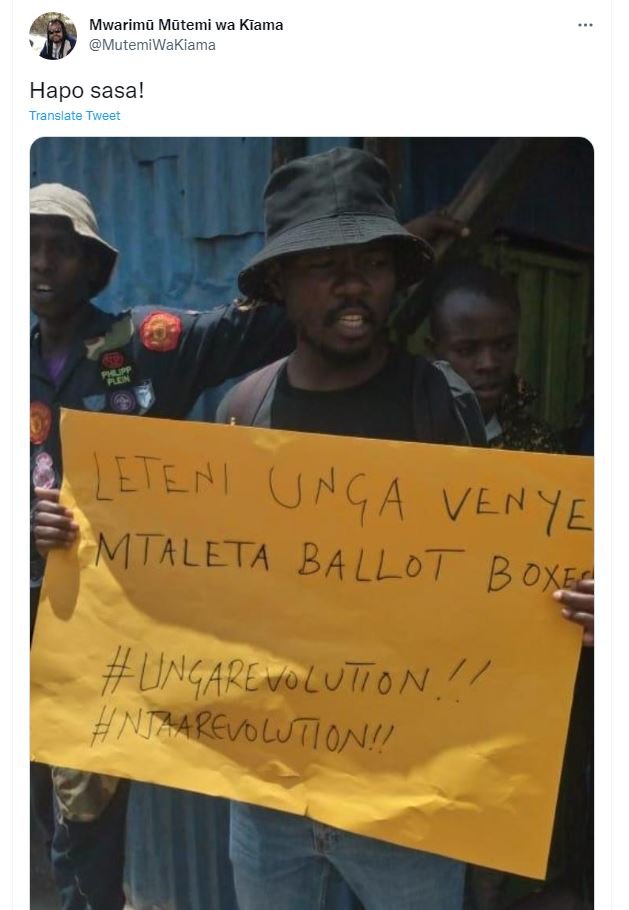 Mwarimũ Mũtemi wa Kĩama
@MutemiWaKiama
Hapo sasa!
Translate Tweet
PHILIPP
PLEIN
LETENI UNGA VENYE
MTALETA BALLOT BOXES
#UNGAREVOLUTION!!
#NJAAREVOLUTION!!